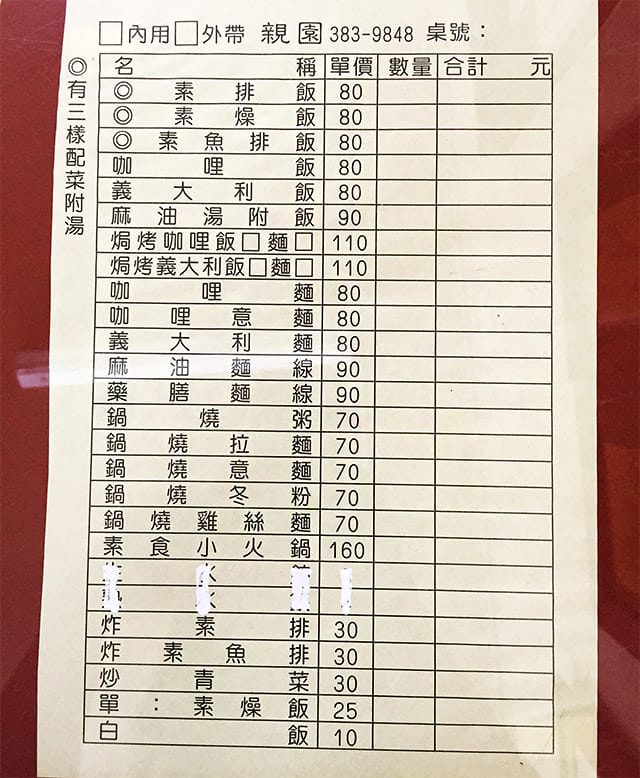 □內用□外帶 親園 383-9848 桌號：
◎有三樣配菜附湯
名稱 單價 數量 合計 元
◎素排飯 80
◎素燥飯 80
◎素魚排飯 80
咖哩飯 80
義大利飯 80
麻油湯附飯 90
焗烤咖哩飯□麵□ 110
焗烤義大利飯□麵□ 110
咖哩麵 80
咖哩意麵 80
義大利麵 80
麻油麵線 90
藥膳麵線 90
鍋燒粥 70
鍋燒拉麵 70
鍋燒意麵 70
鍋燒冬粉 70
鍋燒雞絲麵 70
素食小火鍋 160
炸素排 30
炸素魚排 30
炒青菜 30
單：素燥飯 25
白飯 10